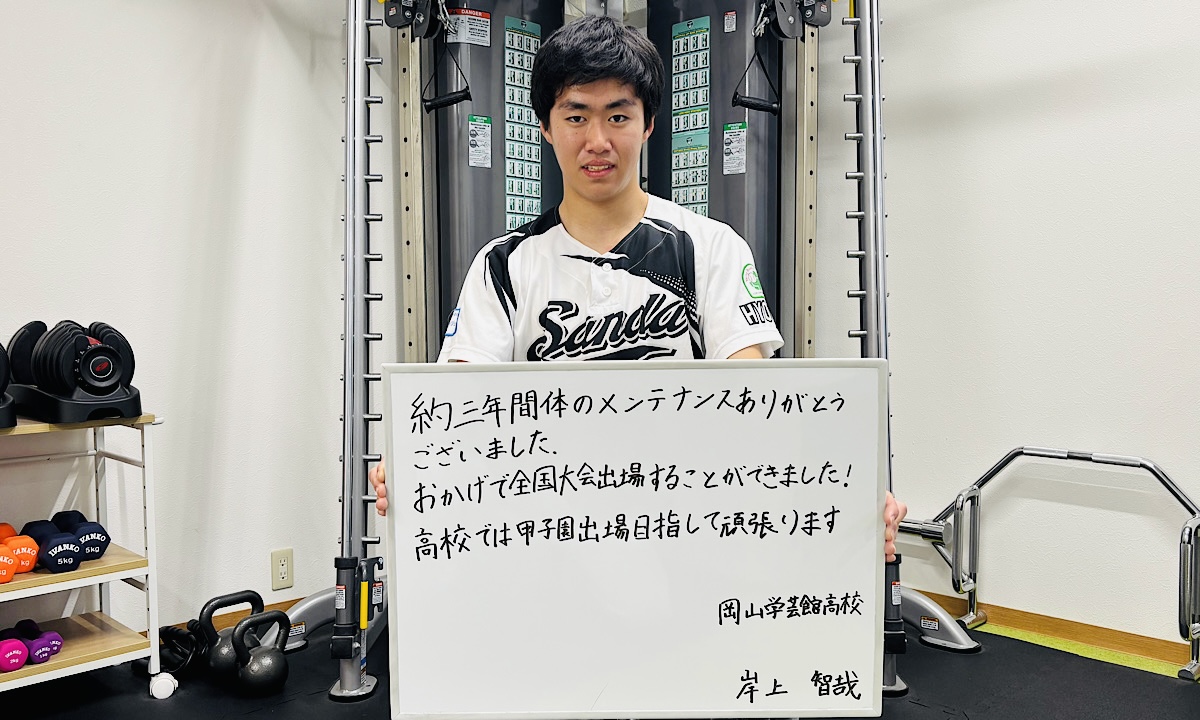 DANGER
Sanda
HYO
約三年間体のメンテナンスありがとう
ございました.
おかげで全国大会出場することができました!
高校では甲子園出場目指して頑張ります
岡山学芸館高校
岸上 智哉
IVANKO
5kg
IVANKO
IVANKO